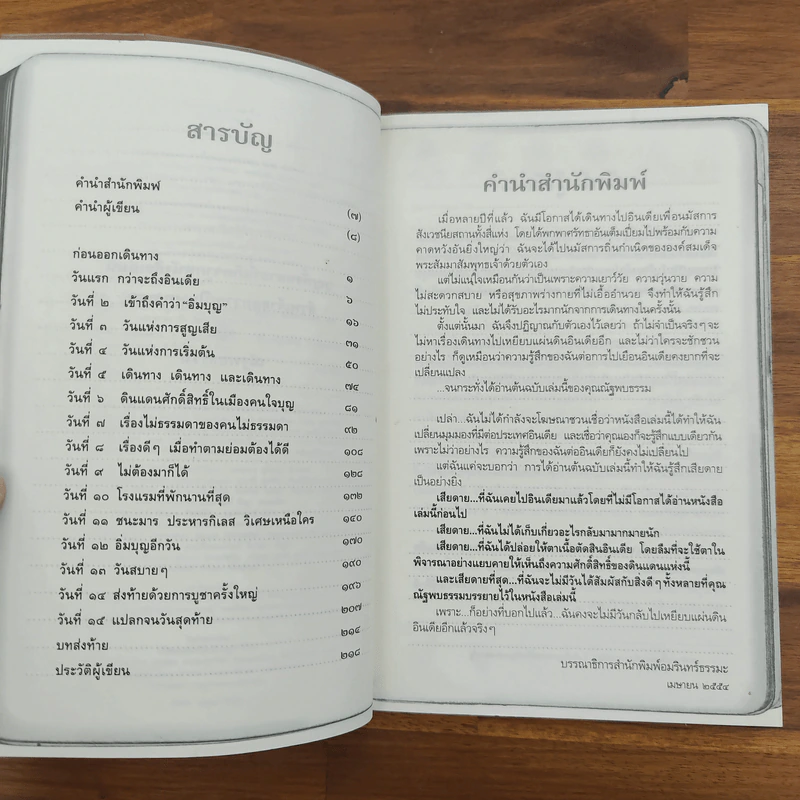 สารบัญ
คำนำสำนักพิมพ์ (๗)
คำนำผู้เขียน (๘)
ก่อนออกเดินทาง ๑
วันแรก กว่าจะถึงอินเดีย ๖
วันที่ ๒ เข้าถึงคำว่า “อิ่มบุญ” ๑๖
วันที่ ๓ วันแห่งการสูญเสีย ๓๑
วันที่ ๔ วันแห่งการเริ่มต้น ๕๐
วันที่ ๕ เดินทาง เดินทาง และเดินทาง ๗๔
วันที่ ๖ ดินแดนศักดิ์สิทธิ์ในเมืองคนใจบุญ ๘๑
วันที่ ๗ เรื่องไม่ธรรมดาของคนไม่ธรรมดา ๙๒
วันที่ ๘ เรื่องดีๆ เมื่อทำตามย่อมต้องได้ดี ๑๐๘
วันที่ ๙ ไม่ต้องมาก็ได้ ๑๒๘
วันที่ ๑๐ โรงแรมที่พักนานที่สุด ๑๓๒
วันที่ ๑๑ ชนะมาร ประหารกิเลส วิเศษเหนือใคร ๑๔๐
วันที่ ๑๒ อิ่มบุญอีกวัน ๑๗๐
วันที่ ๑๓ วันสบายๆ ๑๙๐
วันที่ ๑๔ ส่งท้ายด้วยการบูชาครั้งใหญ่ ๑๙๖
วันที่ ๑๕ แปลกจนวันสุดท้าย ๒๐๗
บทส่งท้าย ๒๑๔
ประวัติผู้เขียน ๒๑๘
คำนำสำนักพิมพ์
เมื่อหลายปีที่แล้ว ฉันมีโอกาสได้เดินทางไปอินเดียเพื่อนมัสการ
สังเวชนียสถานทั้งสี่แห่ง โดยได้พกพาศรัทธาอันเต็มเปี่ยมไปพร้อมกับความ
คาดหวังอันยิ่งใหญ่ว่า ฉันจะได้ไปนมัสการถิ่นกำเนิดขององค์สมเด็จ
พระสัมมาสัมพุทธเจ้าด้วยตัวเอง
แต่ไม่แน่ใจเหมือนกันว่าเป็นเพราะความเยาว์วัย ความวุ่นวาย ความ
ไม่สะดวกสบาย หรือสุขภาพร่างกายที่ไม่เอื้ออำนวย จึงทำให้ฉันรู้สึก
ไม่ประทับใจ และไม่ได้รับอะไรมากนักจากการเดินทางในครั้งนั้น
ตั้งแต่นั้นมา ฉันจึงปฏิญาณกับตัวเองไว้เลยว่า ถ้าไม่จำเป็นจริงๆ จะ
ไม่หาเรื่องเดินทางไปเหยียบแผ่นดินอินเดียอีก และไม่ว่าใครจะชักชวน
อย่างไร ก็ดูเหมือนว่าความรู้สึกของฉันต่อการไปเยือนอินเดียคงยากที่จะ
เปลี่ยนแปลง
...จนกระทั่งได้อ่านต้นฉบับเล่มนี้ของคุณณัฐพบธรรม
เปล่า...ฉันไม่ได้กำลังจะโฆษณาชวนเชื่อว่าหนังสือเล่มนี้ได้ทำให้ฉัน
เปลี่ยนมุมมองที่มีต่อประเทศอินเดีย และเชื่อว่าคุณเองก็จะรู้สึกแบบเดียวกัน
เพราะไม่ว่าอย่างไร ความรู้สึกของฉันต่ออินเดียก็ยังคงไม่เปลี่ยนไป
แต่ฉันแค่จะบอกว่า การได้อ่านต้นฉบับเล่มนี้ทำให้ฉันรู้สึกเสียดาย
เป็นอย่างยิ่ง
เสียดาย...ที่ฉันเคยไปอินเดียมาแล้วโดยที่ไม่มีโอกาสได้อ่านหนังสือ
เล่มนี้ก่อนไป
เสียดาย...ที่ฉันไม่ได้เก็บเกี่ยวอะไรกลับมามากมายนัก
เสียดาย...ที่ฉันได้ปล่อยให้ตาเนื้อตัดสินอินเดีย โดยลืมที่จะใช้ตาใน
พิจารณาอย่างแยบคายให้เห็นถึงความศักดิ์สิทธิ์ของดินแดนแห่งนี้
และเสียดายที่สุด...ที่ฉันจะไม่มีวันได้สัมผัสกับสิ่งดีๆ ทั้งหลายที่คุณ
ณัฐพบธรรมบรรยายไว้ในหนังสือเล่มนี้
เพราะ...ก็อย่างที่บอกไปแล้ว...ฉันคงจะไม่มีวันกลับไปเหยียบแผ่นดิน
อินเดียอีกแล้วจริงๆ
บรรณาธิการสำนักพิมพ์อมรินทร์ธรรมะ
เมษายน ๒๕๕๔